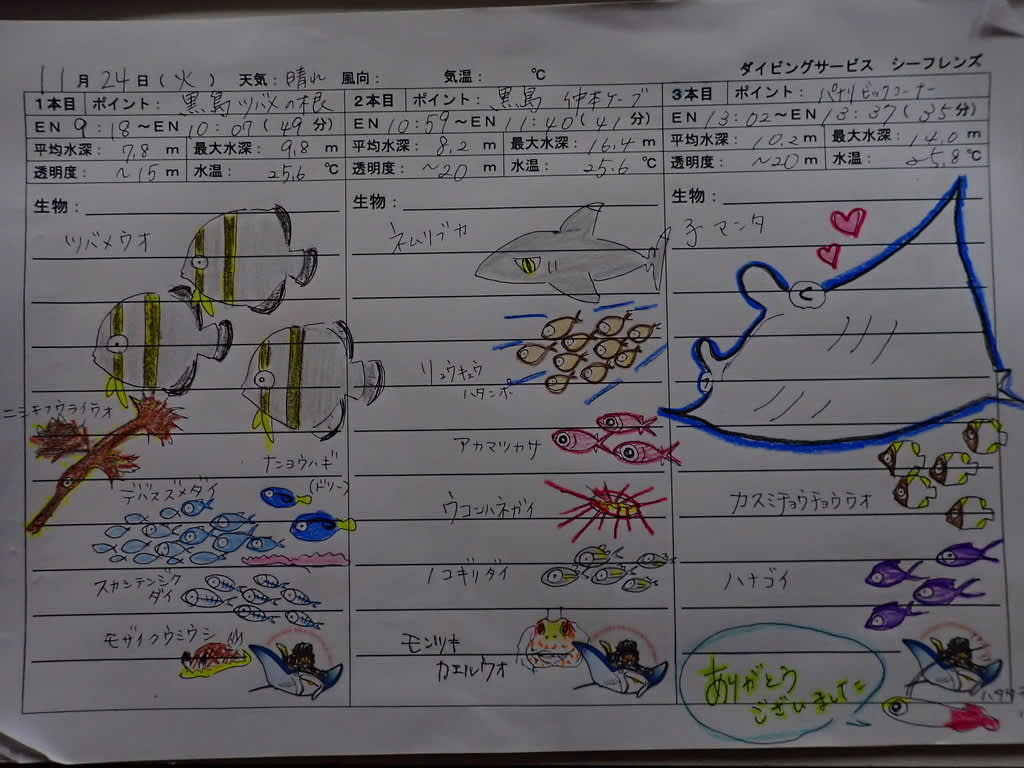 ダイビングサービス シーフレンズ
11月24日(火) 天気:晴れ 風向: 気温: ℃
1本目 ポイント: 黒島 ツバメの根
EN 9:18~EN 10:07(49分)
平均水深: 7.8 m 最大水深: 9.8 m
透明度: ~15 m 水温: 25.6 ℃
生物:
ツバメウオ
ニシキフウライウオ
ナンヨウハギ
(ドリー)
デバスズメダイ
スカシテンジク
ダイ
モザイクウミウシ
2本目 ポイント: 黒島 仲本ケーブ
EN 10:59~EN 11:40(41分)
平均水深: 8.2 m 最大水深: 16.4 m
透明度: ~20 m 水温: 25.6 ℃
生物:
ネムリブカ
リュウキュウ
ハタンポ
アカマツカサ
ウコンハネガイ
ノコギリダイ
モンツキ
カエルウオ
3本目 ポイント: パナリビックコーナー
EN 13:02~EN 13:37(35分)
平均水深: 10.2 m 最大水深: 14.0 m
透明度: ~20 m 水温: 25.8 ℃
生物:
子マンタ
カスミチョウチョウウオ
ハナゴイ
ありがとう
ございました